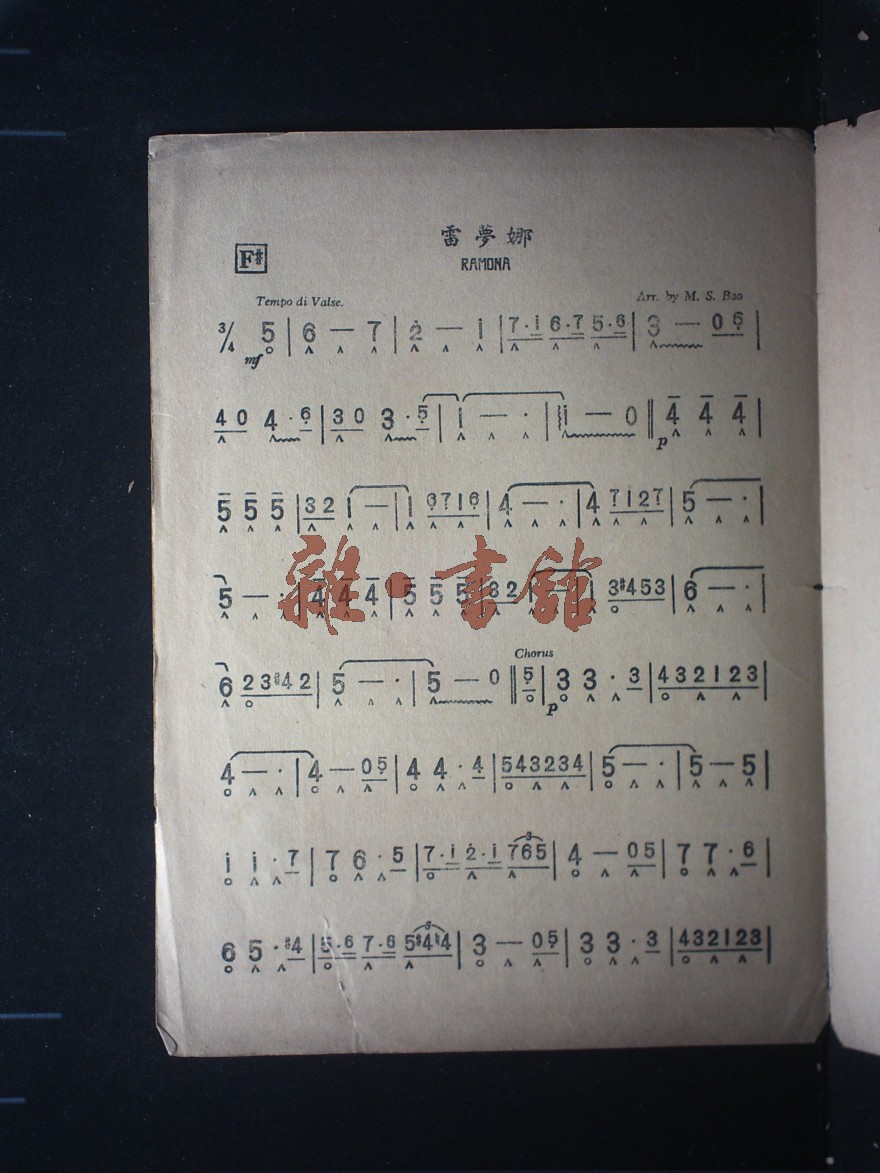 雷夢娜
F♯ RAMONA
Tempo di Valse. Arr. by M. S. Bao
3/4 5 | 6 — 7 | 2̇ — i | 7·i 6·7 5·6 | 3 — 0 6 |
mf
4 0 4·6 | 3 0 3·5 | i — · | i — 0 ‖ 4 4 4 |
p
5 5 5 | 3 2 1 — | 1 6 7 1 6 | 4 — · | 4 7 1 2 7 | 5 — · |
5 — · | 4 4 4 | 5 5 5 | 3 2 1 — | 3 ♯4 5 3 | 6 — · |
雜·書館
Chorus
6 2 3 ♯4 2 | 5 — · | 5 — 0 ‖ 5 | 3 3·3 | 4 3 2 1 2 3 |
p
4 — · | 4 — 0 5 | 4 4·4 | 5 4 3 2 3 4 | 5 — · | 5 — 5 |
i i·7 | 7 6·5 | 7·i 2̇·i 7 6 5 | 4 — 0 5 | 7 7·6 |
6 5·♯4 | 5·6 7·6 5 ♯4 ♮4 | 3 — 0 5 | 3 3·3 | 4 3 2 1 2 3 |